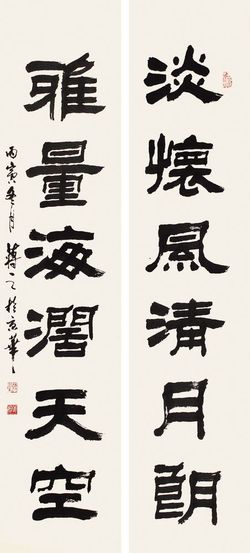 淡懷風清月朗
雅量海濶天空
丙寅冬月 於京華